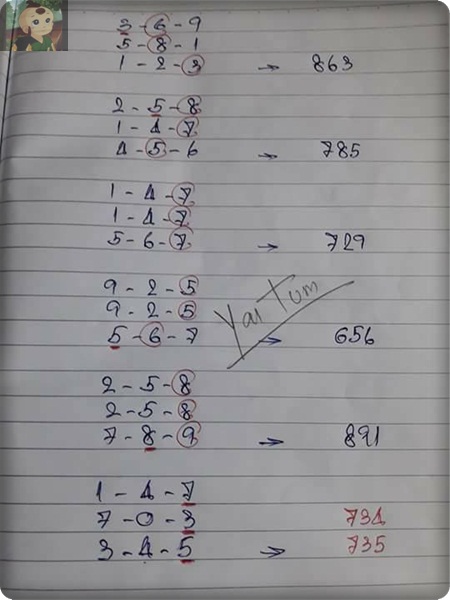 3 - 6 - 9
5 - 8 - 1
1 - 2 - 3 → 863
2 - 5 - 8
1 - 4 - 7
4 - 5 - 6 → 785
1 - 4 - 7
1 - 4 - 7
5 - 6 - 7 → 729
9 - 2 - 5
9 - 2 - 5
Yai Tum
5 - 6 - 7 → 656
2 - 5 - 8
2 - 5 - 8
7 - 8 - 9 → 891
1 - 4 - 7
7 - 0 - 3 734
3 - 4 - 5 → 735